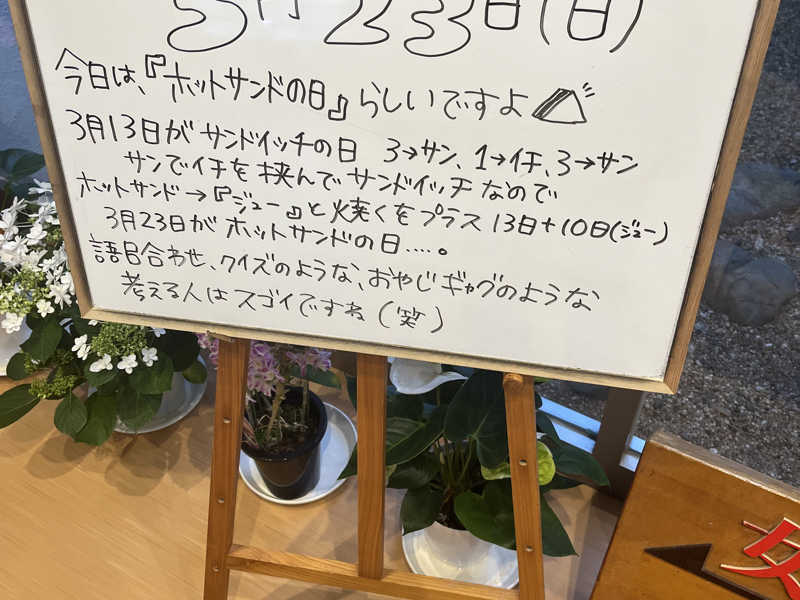 3月23日(日)
今日は、『ホットサンドの日』らしいですよ
3月13日がサンドイッチの日 3→サン、1→イチ、3→サン
サンでイチを挟んでサンドイッチなので
ホットサンド→『ジュー』と焼くをプラス 13日+10日(ジュー)
3月23日がホットサンドの日....。
語呂合わせ、クイズのような、おやじギャグのような
考える人はスゴイですね(笑)